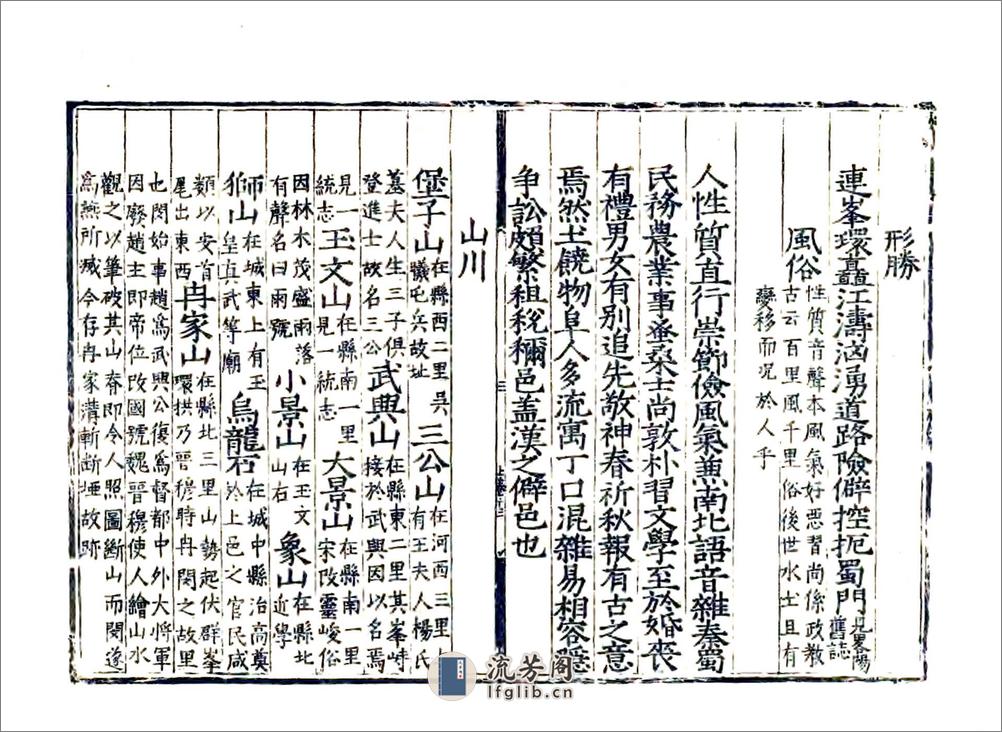 形勝
連峯環矗江濤洶湧道路險僻控扼蜀門見畧陽舊誌
風俗
性質音聲本風氣好惡習尚係政教
古云百里風千里俗後世水土且有
變移而况於人乎
人性質直行崇節儉風氣兼南北語音雜秦蜀
民務農業事蚕桑士尚敦朴習文學至於婚喪
有禮男女有别追先敬神春祈秋報有古之意
焉然土饒物阜人多流寓丁口混雜易相容隱
争訟頗繁租稅稱邑盖漢之僻邑也
山川
堡子山在縣西二里吳犧屯兵故址三公山在河西三里上有王夫人楊氏
墓夫人生三子俱登進士故名三公武興山在縣東二里其峯峙接於武興因以名焉
見一統志玉文山在縣南一里見一統志大景山在縣南一里宋改靈峻俗
因林木茂盛雨落有聲名曰雨號小景山在玉文山右象山在縣北近學
獅山在城東上有玉皇真武等廟烏龍石在城中縣治高奠於上邑之官民咸
類以安首尾出東西冉家山在縣北三里山勢起伏群峯環拱乃晉穆時冉閔之故里
也閔始事趙爲武興公復爲督都中外大將軍
因廢趙主即帝位改國號魏晉穆使人繪山水
觀之以筆破其山脊即令人照圖斷山而閔遂
爲燕所滅今存冉家溝斬斷埡故跡
流芳阁
lfglib.cn